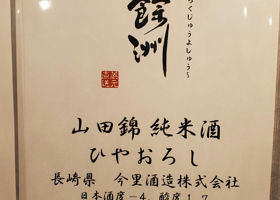 らくじゅうよしゅう～
餘洲
山田錦 純米酒
ひやおろし
長崎県 今里酒造株式会社
日本酒度－4 酸度1.7